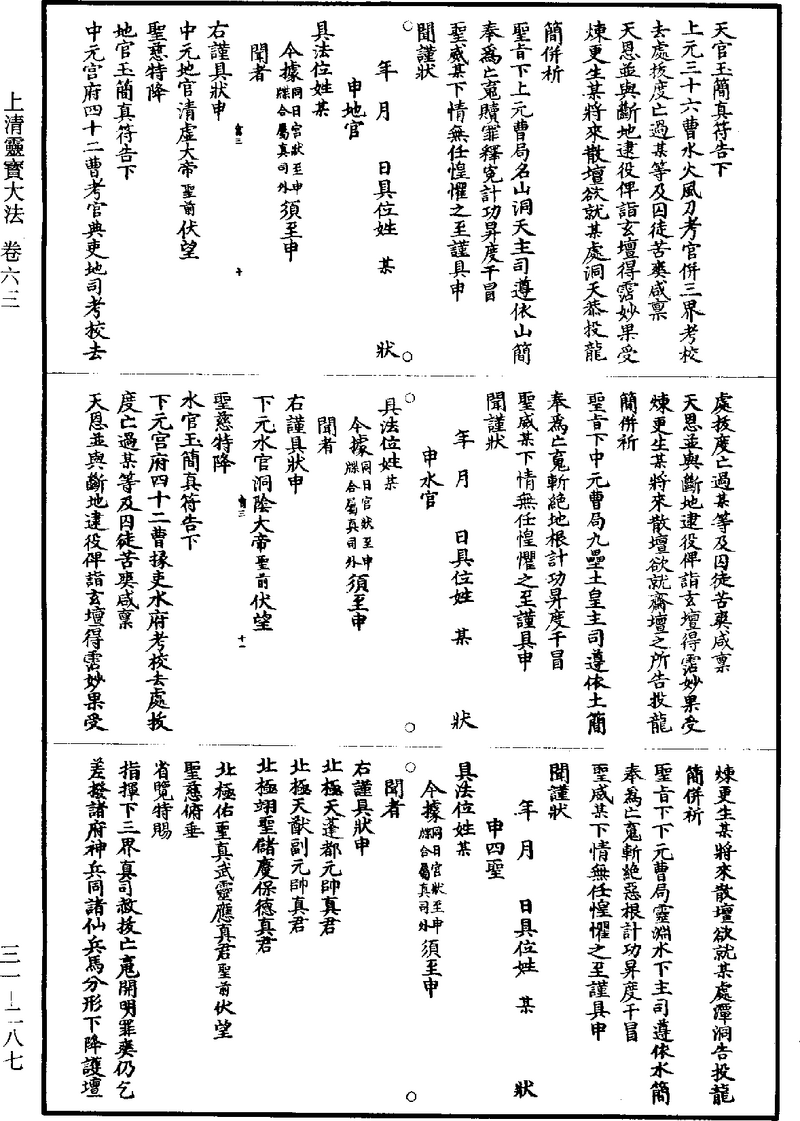 天官玉簡真符告下
上元三十六曹水火風刀考官併三界考校
去處拔度亡過某等及囚徒苦爽咸稟
天恩並與斷地逮役俾詣玄壇得霑妙果受
煉更生某將來散壇欲就某處洞天恭投龍
簡併祈
聖旨下上元曹局名山洞天主司遵依山簡
奉為亡䰟贖罪釋寃計功昇度干冒
聖威某下情無任惶懼之至謹具申
聞謹狀
年 月 日具位姓 某 狀
申地官
具法位姓某
今據同日官狀至申牒合屬真司外須至申
聞者
右謹具狀申
中元地官清虛大帝聖前伏望
聖慈特降
地官玉簡真符告下
中元宫府四十二曹考官典吏地司考校去
處拔度亡過某等及囚徒苦爽咸稟
天恩並與斷地逮役俾詣玄壇得霑妙果受
煉更生某將來散壇欲就齋壇之所告投龍
簡併祈
聖旨下中元曹局九壘土皇主司遵依土簡
奉為亡䰟斬絕地根計功昇度干冒
聖威某下情無任惶懼之至謹具申
聞謹狀
年 月 日具位姓 某 狀
申水官
具法位姓某
今據同日官狀至申牒合屬真司外須至申
聞者
右謹具狀申
下元水官洞陰大帝聖前伏望
聖慈特降
水官玉簡真符告下
下元宫府四十二曹掾吏水府考校去處拔
度亡過某等及囚徒苦爽咸稟
天恩並與斷地逮役俾詣玄壇得霑妙果受
煉更生某將來散壇欲就某處潭洞告投龍
簡併祈
聖旨下下元曹局靈淵水下主司遵依水簡
奉為亡䰟斬絕惡根計功昇度干冒
聖威某下情無任惶懼之至謹具申
聞謹狀
年 月 日具位姓 某 狀
申四聖
具法位姓某
今據同日官狀至申牒合屬真司外須至申
聞者
右謹具狀申
北極天蓬都元帥真君
北極天猷副元帥真君
北極翊聖儲慶保德真君
北極佑聖真武靈應真君聖前伏望
聖慈俯垂
省覽特賜
指揮下三界真司敕拔亡䰟開明罪爽仍乞
差撥諸府神兵同諸仙兵馬分形下降護壇
上清靈寶大法 卷六三
三一—二八七